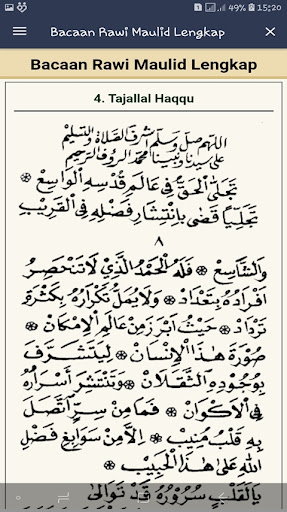 49% 15:20
Bacaan Rawi Maulid Lengkap
Bacaan Rawi Maulid Lengkap
4. Tajallal Haqqu
اَللّٰهُمَّ صَلِّ وَسَلِّمْ اَشْرَفَ الصَّلَاةِ وَالتَّسْلِيْمِ
عَلَى سَيِّدِنَا وَنَبِيِّنَا مُحَمَّدٍ الرَّؤُوْفِ الرَّحِيْمِ
تَجَلَّى الْحَقُّ فِيْ عَالَمِ قُدْسِهِ الْوَاسِعِ *
تَجَلِّيًا قَضٰى بِانْتِشَارِ فَضْلِهِ فِي الْقَرِيْبِ
٨
وَالشَّاسِعِ * فَلَهُ الْحَمْدُ الَّذِيْ لَا تَنْحَصِرُ
اَفْرَادُهُ بِتَعْدَادٍ * وَلَا يُمَلُّ تَكْرَارُهُ بِكَثْرَةِ
تَرْدَادٍ * حَيْثُ اَبْرَزَ مِنْ عَالَمِ الْاِمْكَانِ *
صُوْرَةَ هٰذَا الْاِنْسَانِ * لِيَتَشَرَّفَ
بِوُجُوْدِهِ الثَّقَلَانِ * وَتَنْتَشِرَ اَسْرَارُهُ
فِي الْاَكْوَانِ * فَمَا مِنْ سِرٍّ اتَّصَلَ
بِهِ قَلْبُ مُنِيْبٍ * اِلَّا مِنْ سَوَابِغِ فَضْلِ
اللّٰهِ عَلٰى هٰذَا الْحَبِيْبِ *
يَا لَقَلْبٍ سُرُوْرُهُ قَدْ تَوَالٰى